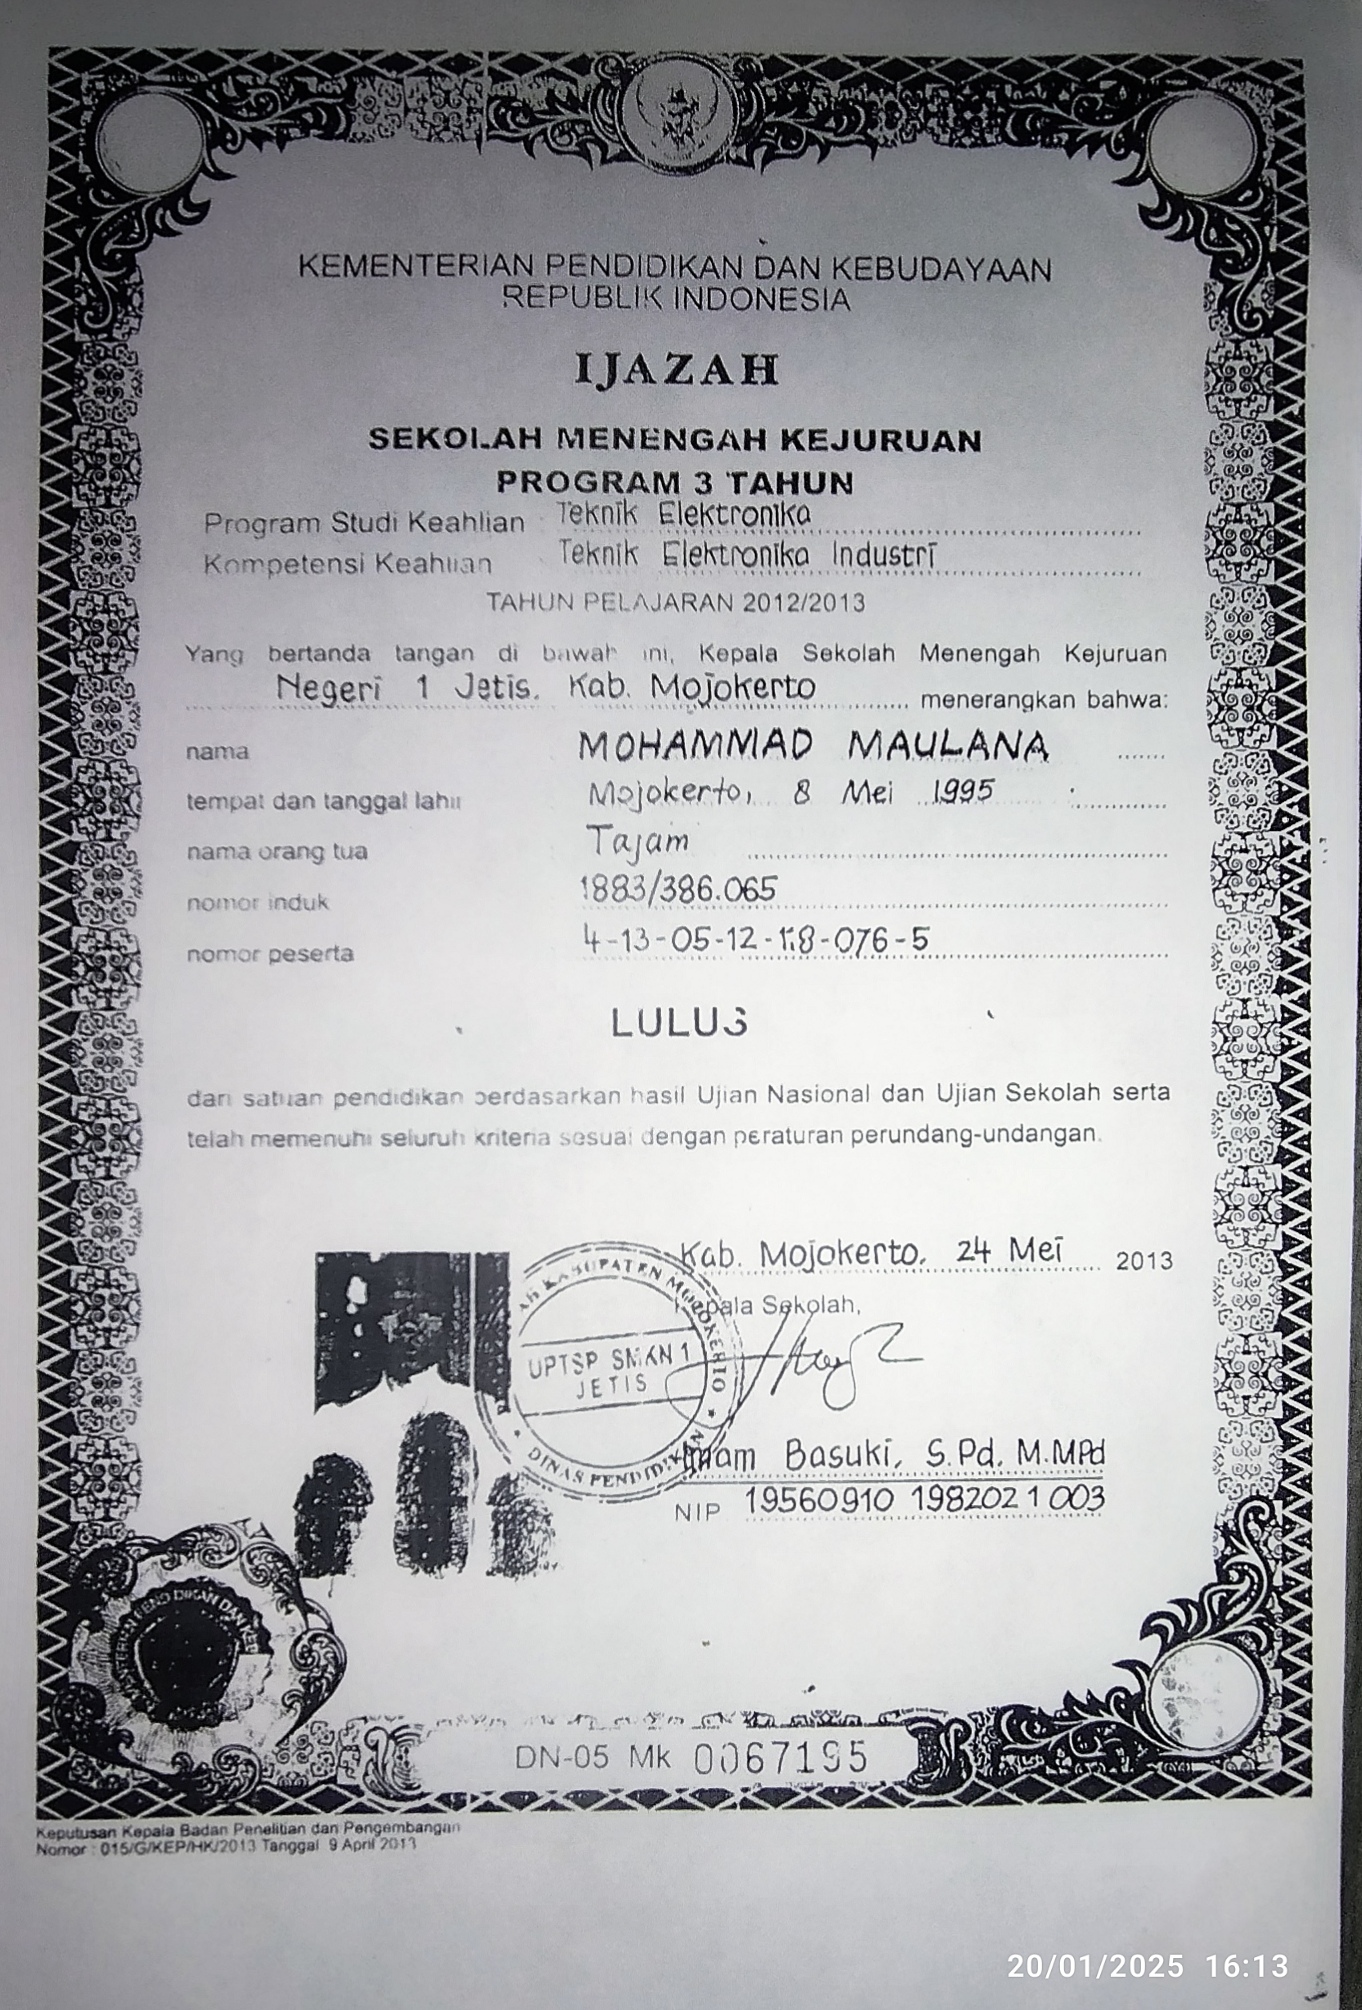 KEMENTERIAN PENDIDIKAN DAN KEBUDAYAAN
REPUBLIK INDONESIA
IJAZAH
SEKOLAH MENENGAH KEJURUAN
PROGRAM 3 TAHUN
Program Studi Keahlian : Teknik Elektronika
Kompetensi Keahlian Teknik Elektronika Industri
TAHUN PELAJARAN 2012/2013
Yang bertanda tangan di bawah ini, Kepala Sekolah Menengah Kejuruan
Negeri 1 Jetis. Kab. Mojokerto menerangkan bahwa:
nama MOHAMMAD MAULANA
tempat dan tanggal lahir Mojokerto, 8 Mei 1995
nama orang tua Tajam
nomor induk 1883/386.065
nomor peserta 4-13-05-12--076-5
LULUS
dari satuan pendidikan berdasarkan hasil Ujian Nasional dan Ujian Sekolah serta
telah memenuhi seluruh kriteria sesuai dengan peraturan perundang-undangan.
Kab. Mojokerto, 24 Mei 2013
Kepala Sekolah,
KABUPATEN MOJOKERTO
UPTSP SMKN 1
JETIS
DINAS PENDIDIKAN
Imam Basuki, S.Pd. M.MPd
NIP 19560910 198202 1 003
DN-05 Mk 0067195
Keputusan Kepala Badan Penelitian dan Pengembangan
Nomor : 015/G/KEP/HK/2013 Tanggal 9 April 2013
20/01/2025 16:13